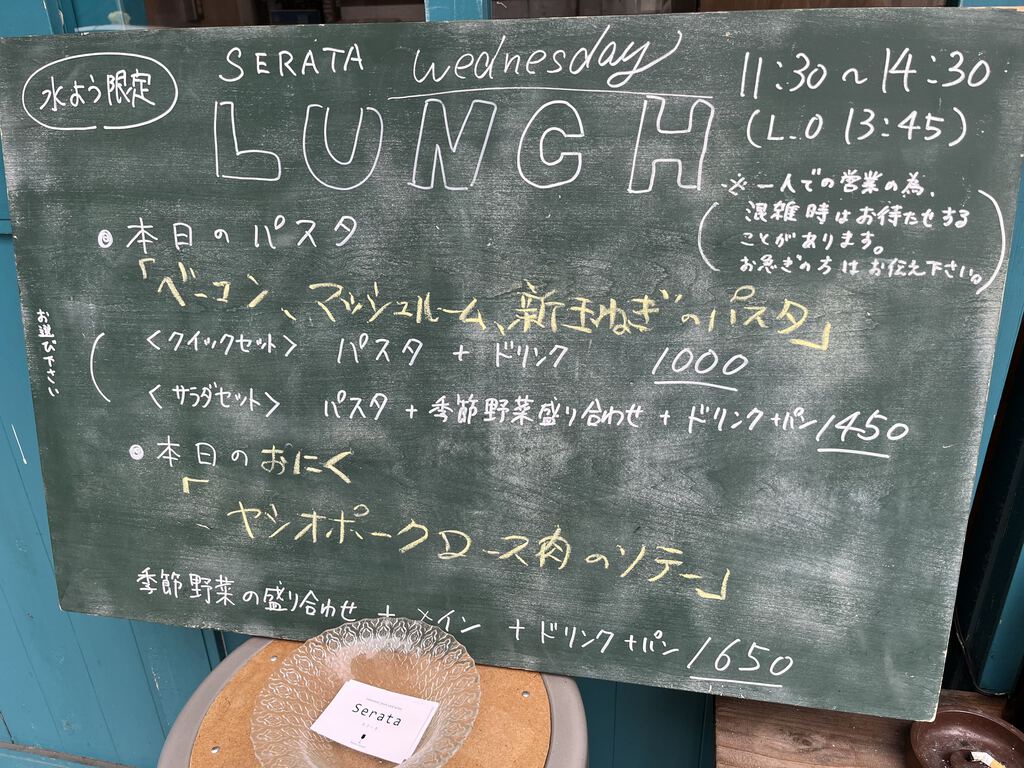 水よう限定
SERATA wednesday
LUNCH
11:30〜14:30
(L.O 13:45)
※一人での営業の為、
混雑時はお待たせする
ことがあります。
お急ぎの方はお伝え下さい。
本日のパスタ
「ベーコン、マッシュルーム、新玉ねぎのパスタ」
お選び下さい
<クイックセット> パスタ + ドリンク 1000
<サラダセット> パスタ + 季節野菜盛り合わせ + ドリンク+パン 1450
本日のおにく
「ヤシオポークロース肉のソテー」
季節野菜の盛り合わせ + メイン + ドリンク+パン 1650
Serata